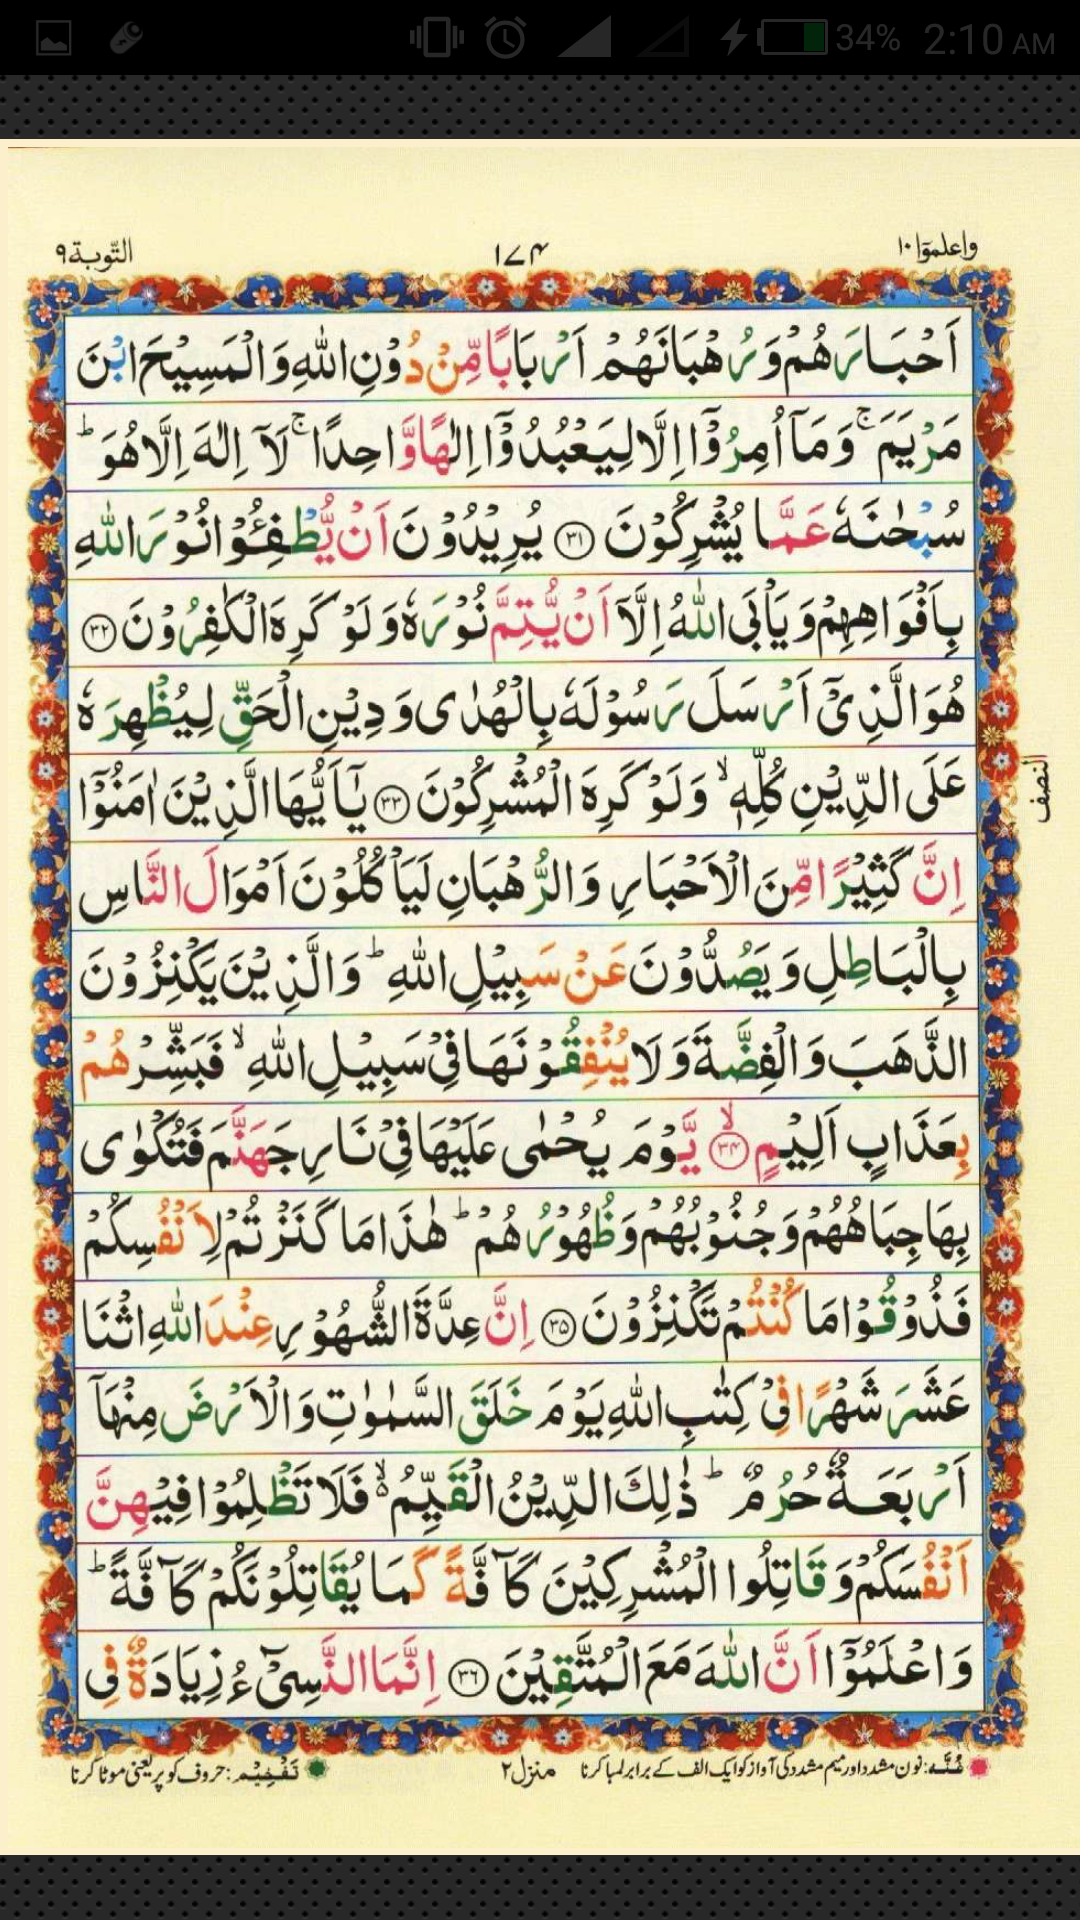 34% 2:10 AM
التّوبة ٩ ١٧٤ واعلموٓا ١٠
اَحۡبَارَهُمۡ وَرُهۡبَانَهُمۡ اَرۡبَابًا مِّنۡ دُوۡنِ اللّٰهِ وَالۡمَسِيۡحَ ابۡنَ
مَرۡيَمَ ۚ وَمَاۤ اُمِرُوۡۤا اِلَّا لِيَعۡبُدُوۡۤا اِلٰهًا وَّاحِدًا ۚ لَاۤ اِلٰهَ اِلَّا هُوَ ؕ
سُبۡحٰنَهٗ عَمَّا يُشۡرِكُوۡنَ ﴿۳۱﴾ يُرِيۡدُوۡنَ اَنۡ يُّطۡفِـُٔوۡا نُوۡرَ اللّٰهِ
بِاَفۡوَاهِهِمۡ وَيَاۡبَى اللّٰهُ اِلَّاۤ اَنۡ يُّتِمَّ نُوۡرَهٗ وَلَوۡ كَرِهَ الۡكٰفِرُوۡنَ ﴿۳۲﴾
هُوَ الَّذِىۡۤ اَرۡسَلَ رَسُوۡلَهٗ بِالۡهُدٰى وَدِيۡنِ الۡحَقِّ لِيُظۡهِرَهٗ
عَلَى الدِّيۡنِ كُلِّهٖ ۙ وَلَوۡ كَرِهَ الۡمُشۡرِكُوۡنَ ﴿۳۳﴾ يٰۤاَيُّهَا الَّذِيۡنَ اٰمَنُوۡۤا
اِنَّ كَثِيۡرًا مِّنَ الۡاَحۡبَارِ وَالرُّهۡبَانِ لَيَاۡكُلُوۡنَ اَمۡوَالَ النَّاسِ
بِالۡبَاطِلِ وَيَصُدُّوۡنَ عَنۡ سَبِيۡلِ اللّٰهِ ؕ وَالَّذِيۡنَ يَكۡنِزُوۡنَ
الذَّهَبَ وَالۡفِضَّةَ وَلَا يُنۡفِقُوۡنَهَا فِىۡ سَبِيۡلِ اللّٰهِ ۙ فَبَشِّرۡهُمۡ
بِعَذَابٍ اَلِيۡمٍ ۙ﴿۳۴﴾ يَّوۡمَ يُحۡمٰى عَلَيۡهَا فِىۡ نَارِ جَهَنَّمَ فَتُكۡوٰى
بِهَا جِبَاهُهُمۡ وَجُنُوۡبُهُمۡ وَظُهُوۡرُهُمۡ ؕ هٰذَا مَا كَنَزۡتُمۡ لِاَنۡفُسِكُمۡ
فَذُوۡقُوۡا مَا كُنۡتُمۡ تَكۡنِزُوۡنَ ﴿۳۵﴾ اِنَّ عِدَّةَ الشُّهُوۡرِ عِنۡدَ اللّٰهِ اثۡنَا
عَشَرَ شَهۡرًا فِىۡ كِتٰبِ اللّٰهِ يَوۡمَ خَلَقَ السَّمٰوٰتِ وَالۡاَرۡضَ مِنۡهَاۤ
اَرۡبَعَةٌ حُرُمٌ ؕ ذٰلِكَ الدِّيۡنُ الۡقَيِّمُ ۙ فَلَا تَظۡلِمُوۡا فِيۡهِنَّ
اَنۡفُسَكُمۡ وَقَاتِلُوا الۡمُشۡرِكِيۡنَ كَآفَّةً كَمَا يُقَاتِلُوۡنَكُمۡ كَآفَّةً ؕ
وَاعۡلَمُوۡۤا اَنَّ اللّٰهَ مَعَ الۡمُتَّقِيۡنَ ﴿۳۶﴾ اِنَّمَا النَّسِىۡٓءُ زِيَادَةٌ فِى
النصف
غُنَّه: نون مشدد اور میم مشدد کی آواز کو ایک الف کے برابر لمبا کرنا منزل ٢ تَفْخِيْم: حروف کو پُر یعنی موٹا کرنا